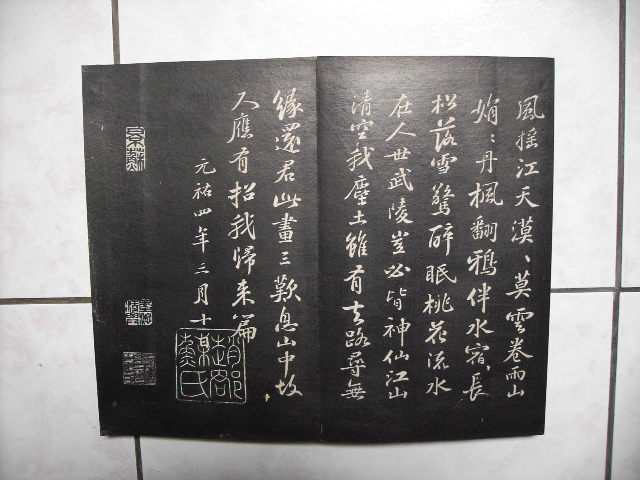 風摇江天漠〻莫雲卷雨山
娟〻丹楓翻鴉伴水宿長
松落雪驚醉眠桃花流水
在人世武陵豈必皆神仙江山
清空我塵土雖有去路尋無
緣還君此畫三歎息山中故
人應有招我歸來篇
元祐四年三月十
趙郡
蘇氏